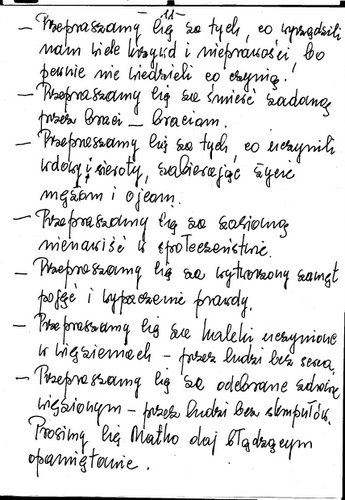 - 11 -
– Przepraszamy Cię za tych, co wyrządzili
nam wiele krzywd i nieprawości, bo
pewnie nie wiedzieli co czynią.
– Przepraszamy Cię za śmierć zadaną
przez braci – braciom.
– Przepraszamy Cię za tych, co uczynili
wdowy i sieroty, zabierając życie
mężom i ojcom.
– Przepraszamy Cię za zasianą
nienawiść w społeczeństwie.
– Przepraszamy Cię za wytworzony zamęt
pojęć i wypaczenie prawdy.
– Przepraszamy Cię za kaleki uczynione
w więzieniach – przez ludzi bez serca.
– Przepraszamy Cię za odebrane zdrowie
więzionym – przez ludzi bez skrupułów.
Prosimy Cię Matko daj błądzącym
opamiętanie.